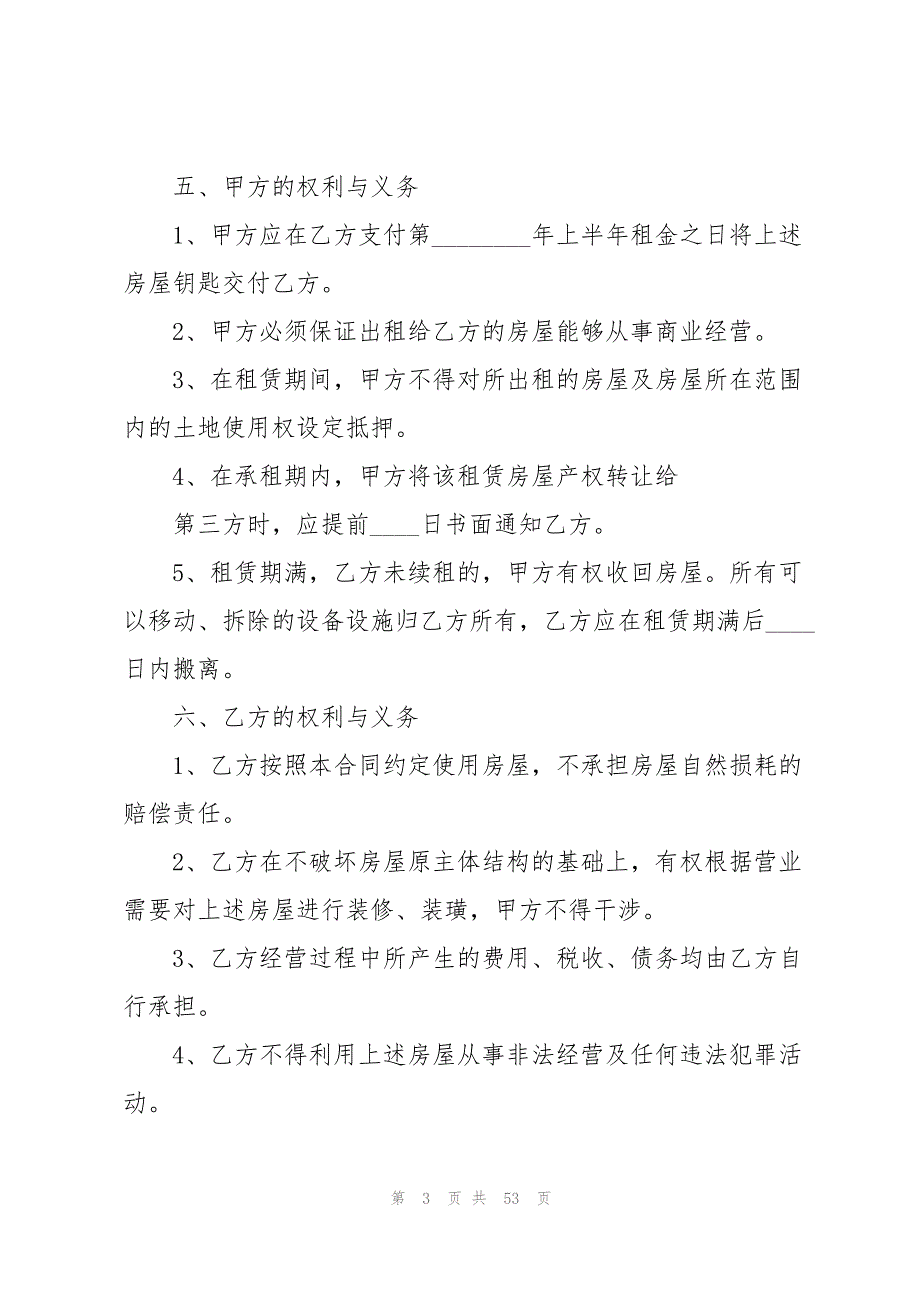 五、甲方的权利与义务
1、甲方应在乙方支付第________年上半年租金之日将上述
房屋钥匙交付乙方。
2、甲方必须保证出租给乙方的房屋能够从事商业经营。
3、在租赁期间，甲方不得对所出租的房屋及房屋所在范围
内的土地使用权设定抵押。
4、在承租期内，甲方将该租赁房屋产权转让给
第三方时，应提前____日书面通知乙方。
5、租赁期满，乙方未续租的，甲方有权收回房屋。所有可
以移动、拆除的设备设施归乙方所有，乙方应在租赁期满后____
日内搬离。
六、乙方的权利与义务
1、乙方按照本合同约定使用房屋，不承担房屋自然损耗的
赔偿责任。
2、乙方在不破坏房屋原主体结构的基础上，有权根据营业
需要对上述房屋进行装修、装璜，甲方不得干涉。
3、乙方经营过程中所产生的费用、税收、债务均由乙方自
行承担。
4、乙方不得利用上述房屋从事非法经营及任何违法犯罪活
动。
第 3 页 共 53 页